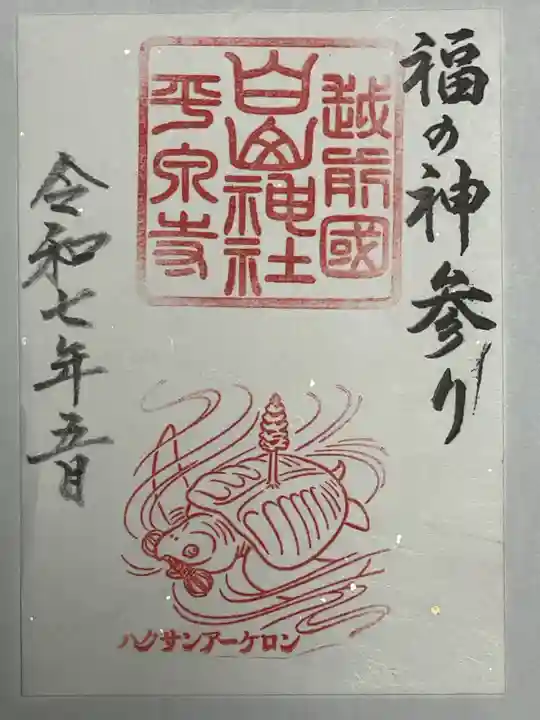 福の神参り
越前國
白山神社
平泉寺
令和七年五日
ハクサンアーケロン